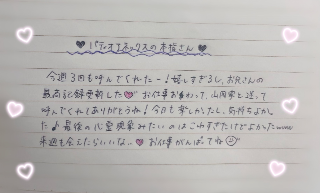 ♥ パティオアネックスの本指さん ♥
今週3回も呼んでくれたー!嬉しすぎるし、お兄さんの
最高記録更新した♥お仕事お疲れって、山岡家と迷って
呼んでくれてありがとうね!今日も楽しかったし、気持ちよかっ
た♪最後の心霊現象みたいのはこわすぎたけどよかったwww
来週も会えたらいいな♥お仕事がんばってね